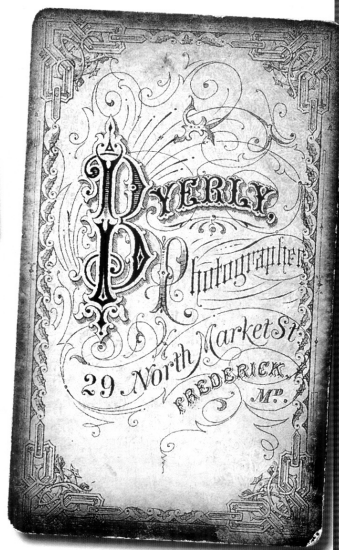 BYERLY,
Photographer
29 North Market St.
FREDERICK,
MD.